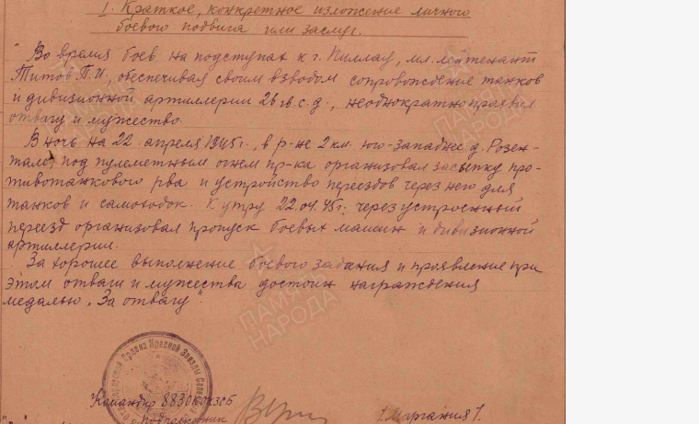 I. Краткое, конкретное изложение личного
боевого подвига или заслуг.
Во время боев на подступах к г. Пиллау, мл. лейтенант
Титов П.И., обеспечивая своим взводом сопровождение танков
и дивизионной артиллерии 26 гв. с.д., неоднократно проявил
отвагу и мужество.
В ночь на 22 апреля 1945г., в р-не 2 км. юго-западнее д. Розен-
таль, под пулеметным огнем пр-ка организовал засыпку про-
тивотанкового рва и устройство переездов через него для
танков и самоходок. К утру 22.04.45г. через устроенный
переезд организовал пропуск боевых машин и дивизионной
артиллерии.
За хорошее выполнение боевого задания и проявление при
этом отваги и мужества достоин награждения
медалью „За отвагу“.
ПАМЯТЬ
НАРОДА
Командир
Подполковник
/Маргания/.